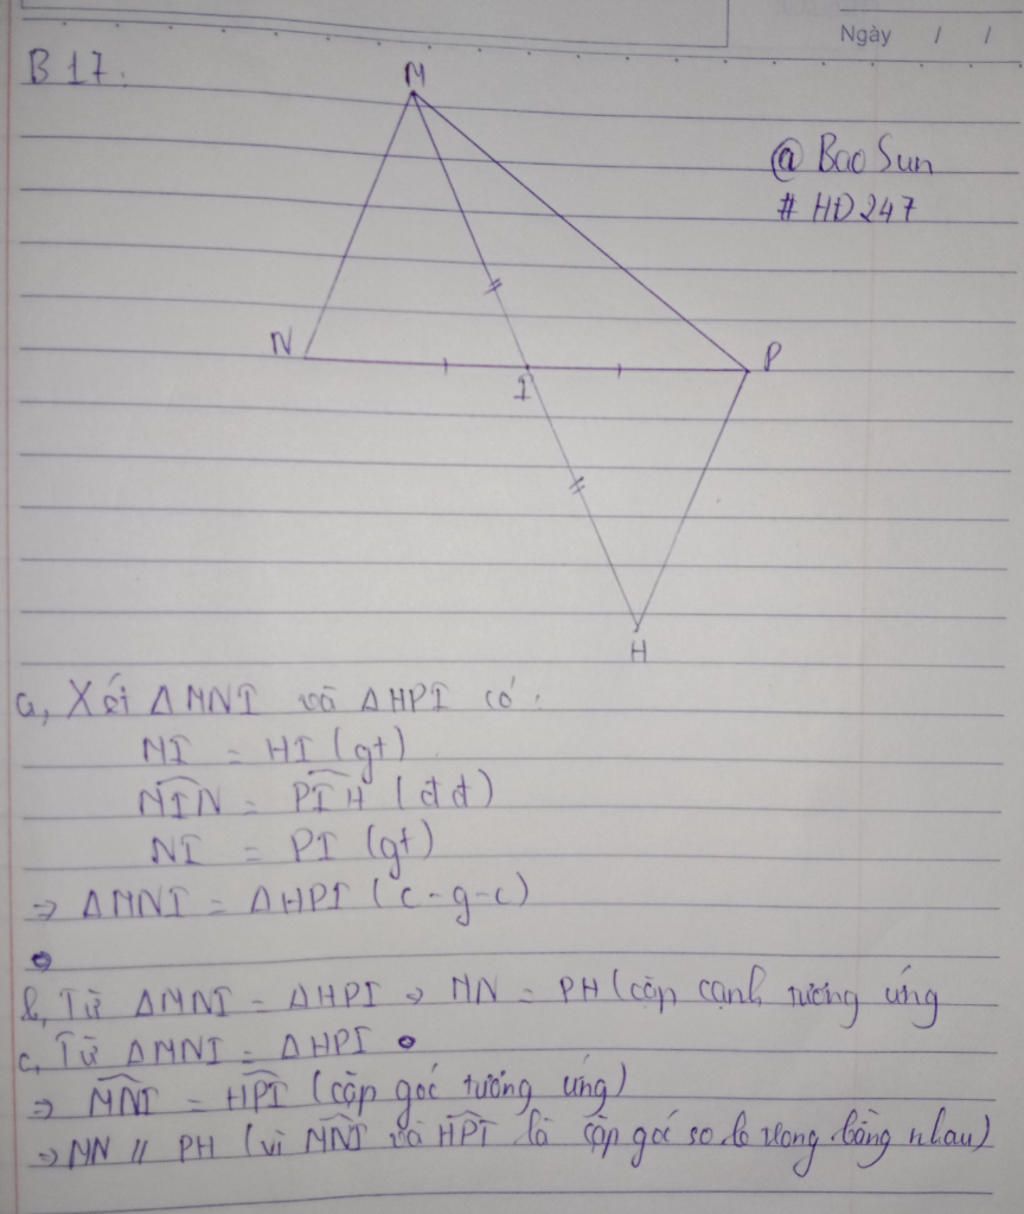 Ngày / /
B 17.
M
@ Bao Sun
# HD247
N
P
I
H
a, Xét ΔMNI và ΔHPI có:
MI = HI (gt)
MIN = PIH (đđ)
NI = PI (gt)
⇒ ΔMNI = ΔHPI (c-g-c)
b, Từ ΔMNI = ΔHPI ⇒ MN = PH (cặp cạnh tương ứng
c, Từ ΔMNI = ΔHPI
⇒ MNI = HPI (cặp góc tương ứng)
⇒ MN // PH (vì MNI và HPI là cặp góc so le trong bằng nhau)